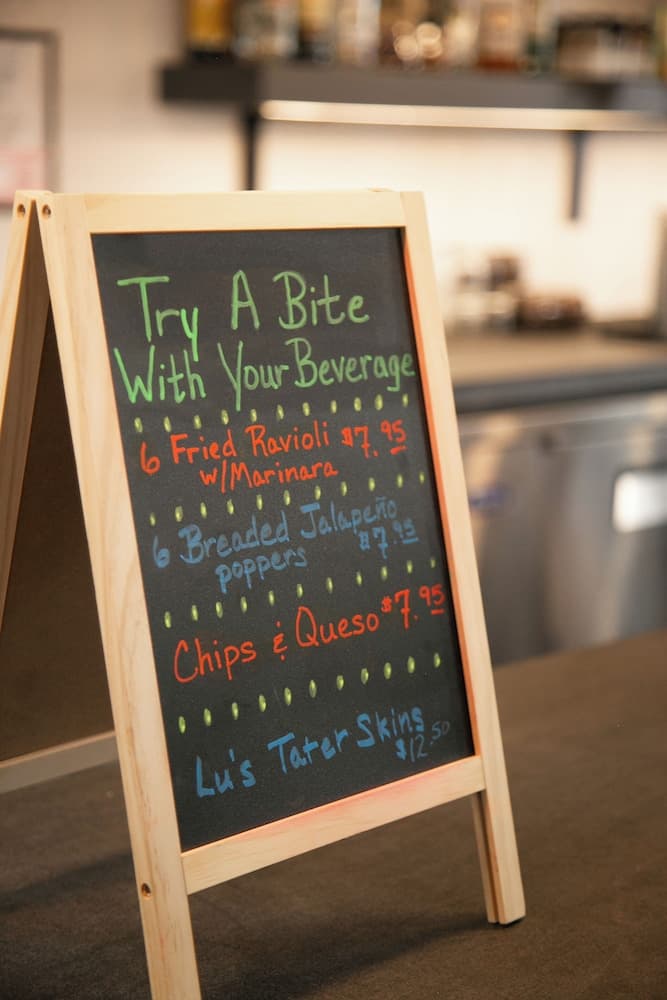 Try A Bite
With Your Beverage
6 Fried Ravioli $7.95
w/Marinara
6 Breaded Jalapeño
poppers $7.95
Chips & Queso $7.95
Lu's Tater Skins
$12.50